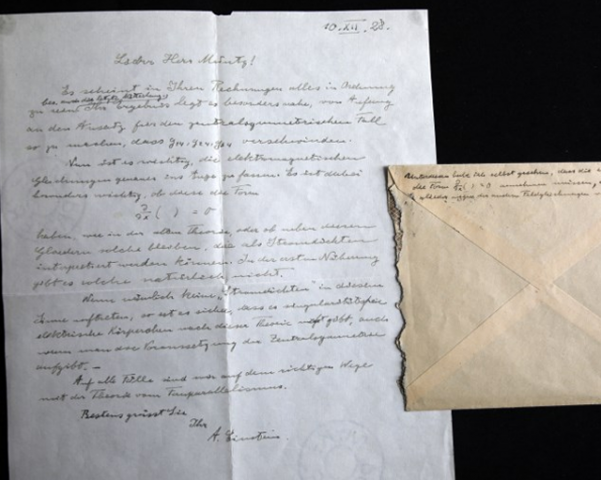 10.XII.28.
Lieber Herr Müntz!
Es scheint in Ihren Rechnungen alles in Ordnung
zu sein. Ihr Ergebnis legt es besonders nahe, von Anfang
an den Ansatz für den zentralsymmetrischen Fall
so zu machen, dass g14, g24, g34 verschwinden.
Nun ist es wichtig, die elektromagnetischen
Gleichungen genauer ins Auge zu fassen. Es ist dabei
besonders wichtig, ob diese die Form
( ) = 0
haben, wie in der alten Theorie, oder ob neben diesen
Gliedern solche bleiben, die als Stromdichten
interpretiert werden können. In der ersten Näherung
gibt es solche natürlich nicht.
Wenn nämlich keine „Stromdichten" in diesem
Sinne auftreten, so ist es sicher, dass es singularitätsfreie
elektrische Körperchen nach dieser Theorie nicht gibt, auch
wenn man die Voraussetzung der Zentralsymmetrie
aufgibt. –
Auf alle Fälle sind wir auf dem richtigen Wege
mit der Theorie vom Fernparallelismus.
Bestens grüsst Sie
Ihr
A. Einstein.
habe ich selbst gesehen, dass die
der Form ( ) = 0 annehmen müssen,
wegen der anderen Feldgleichungen